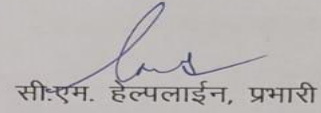 सी.एम. हेल्पलाईन, प्रभारी